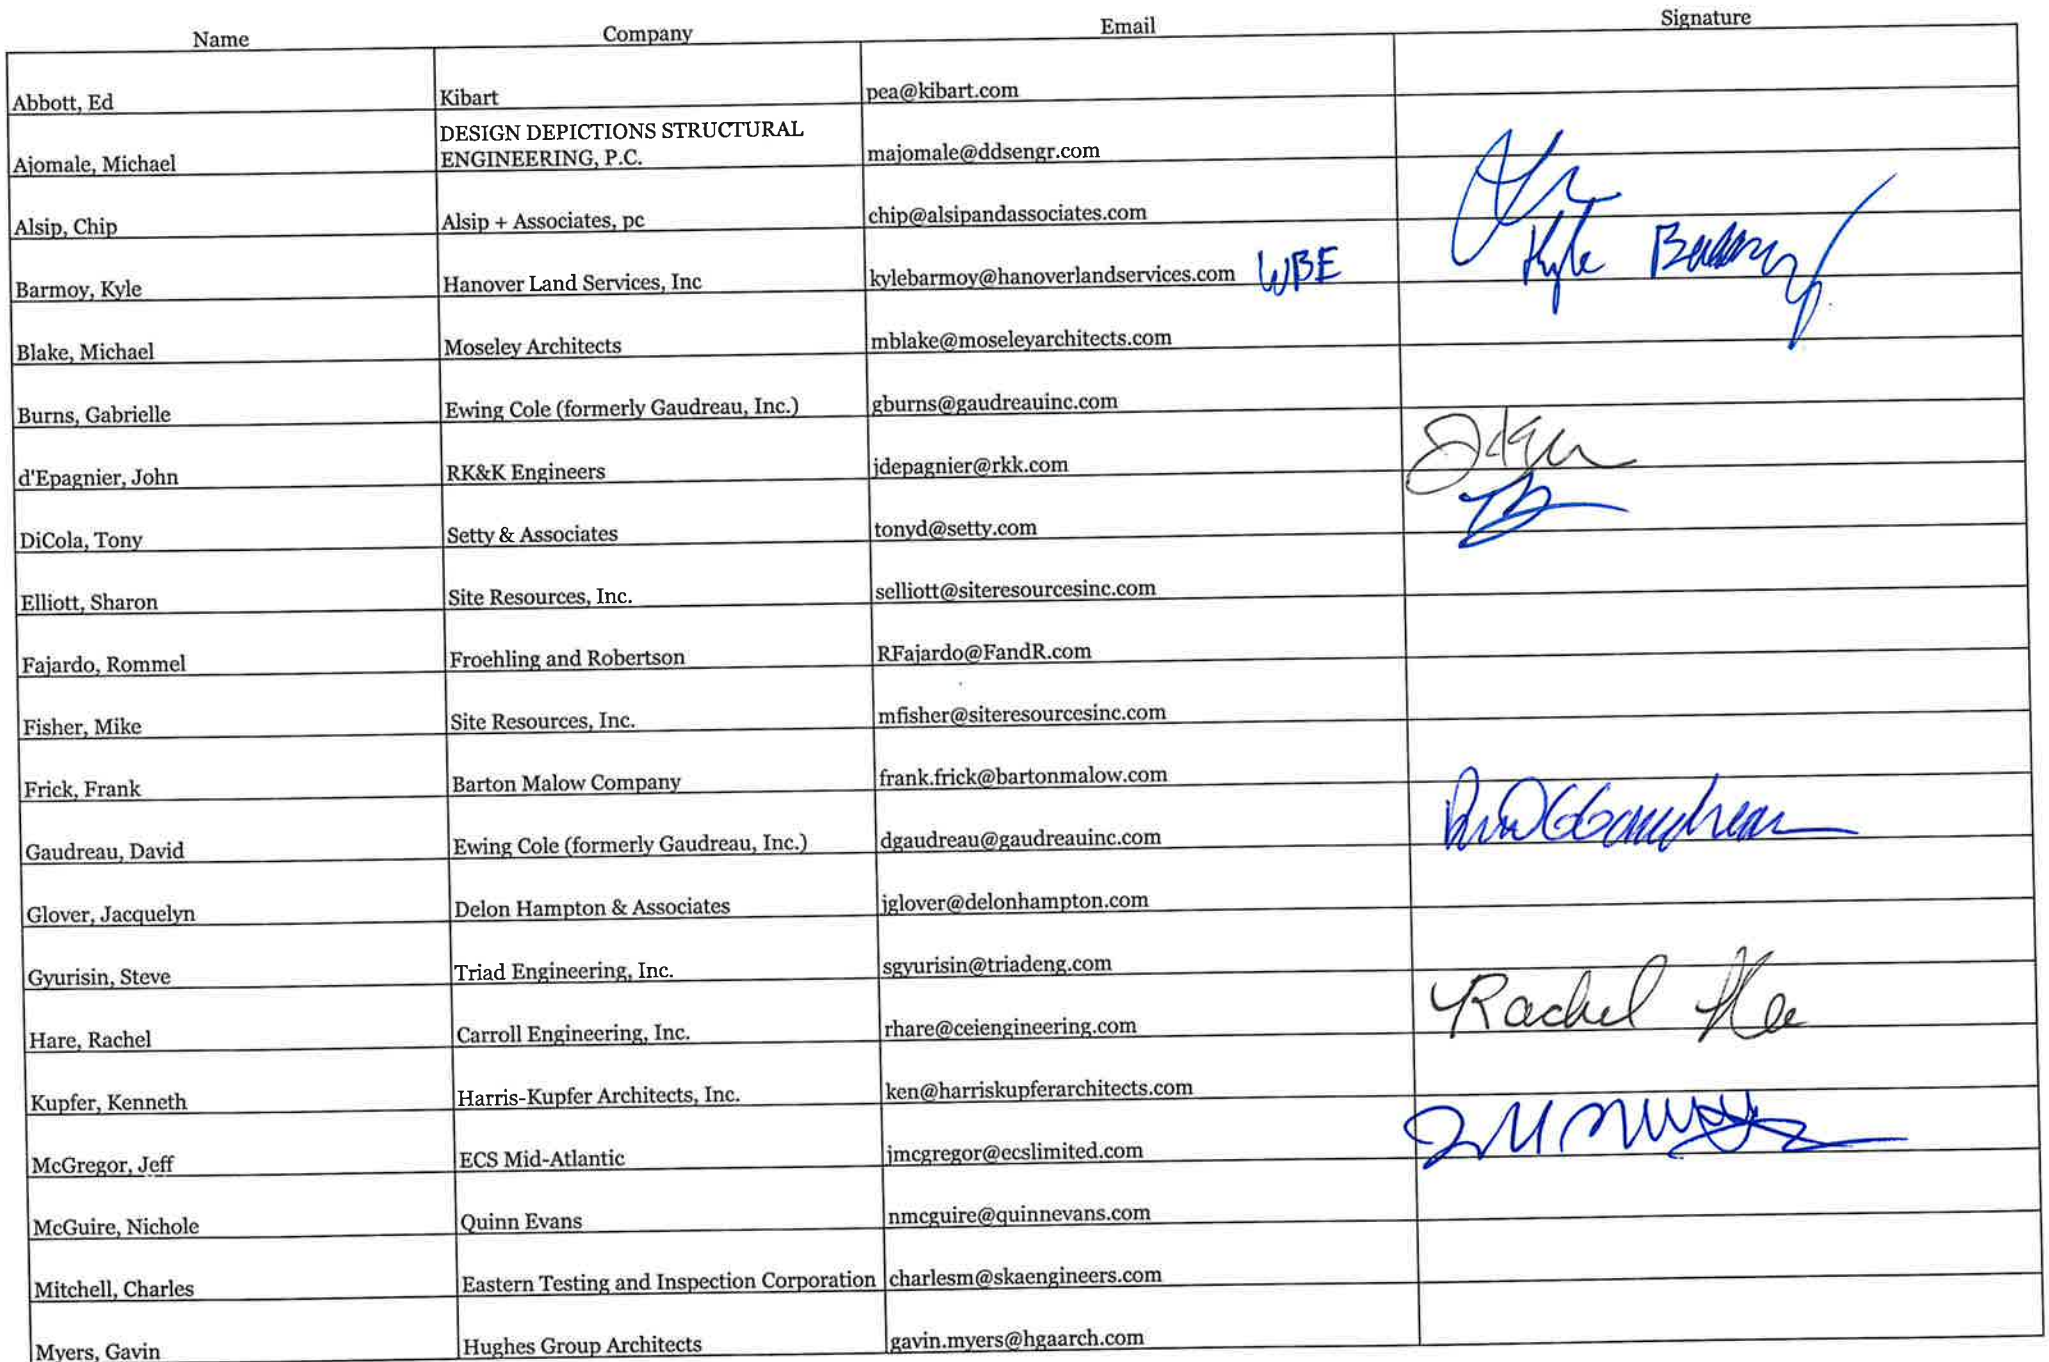 Name Company Email Signature
Abbott, Ed Kibart pea@kibart.com
Ajomale, Michael DESIGN DEPICTIONS STRUCTURAL ENGINEERING, P.C. majomale@ddsengr.com
Alsip, Chip Alsip + Associates, pc chip@alsipandassociates.com
Barmoy, Kyle Hanover Land Services, Inc kylebarmoy@hanoverlandservices.com WBE Kyle Barmoy
Blake, Michael Moseley Architects mblake@moseleyarchitects.com
Burns, Gabrielle Ewing Cole (formerly Gaudreau, Inc.) gburns@gaudreauinc.com
d'Epagnier, John RK&K Engineers jdepagnier@rkk.com
DiCola, Tony Setty & Associates tonyd@setty.com
Elliott, Sharon Site Resources, Inc. selliott@siteresourcesinc.com
Fajardo, Rommel Froehling and Robertson RFajardo@FandR.com
Fisher, Mike Site Resources, Inc. mfisher@siteresourcesinc.com
Frick, Frank Barton Malow Company frank.frick@bartonmalow.com
Gaudreau, David Ewing Cole (formerly Gaudreau, Inc.) dgaudreau@gaudreauinc.com
Glover, Jacquelyn Delon Hampton & Associates jglover@delonhampton.com
Gyurisin, Steve Triad Engineering, Inc. sgyurisin@triadeng.com
Hare, Rachel Carroll Engineering, Inc. rhare@ceiengineering.com Rachel
Kupfer, Kenneth Harris-Kupfer Architects, Inc. ken@harriskupferarchitects.com
McGregor, Jeff ECS Mid-Atlantic jmcgregor@ecslimited.com
McGuire, Nichole Quinn Evans nmcguire@quinnevans.com
Mitchell, Charles Eastern Testing and Inspection Corporation charlesm@skaengineers.com
Myers, Gavin Hughes Group Architects gavin.myers@hgaarch.com